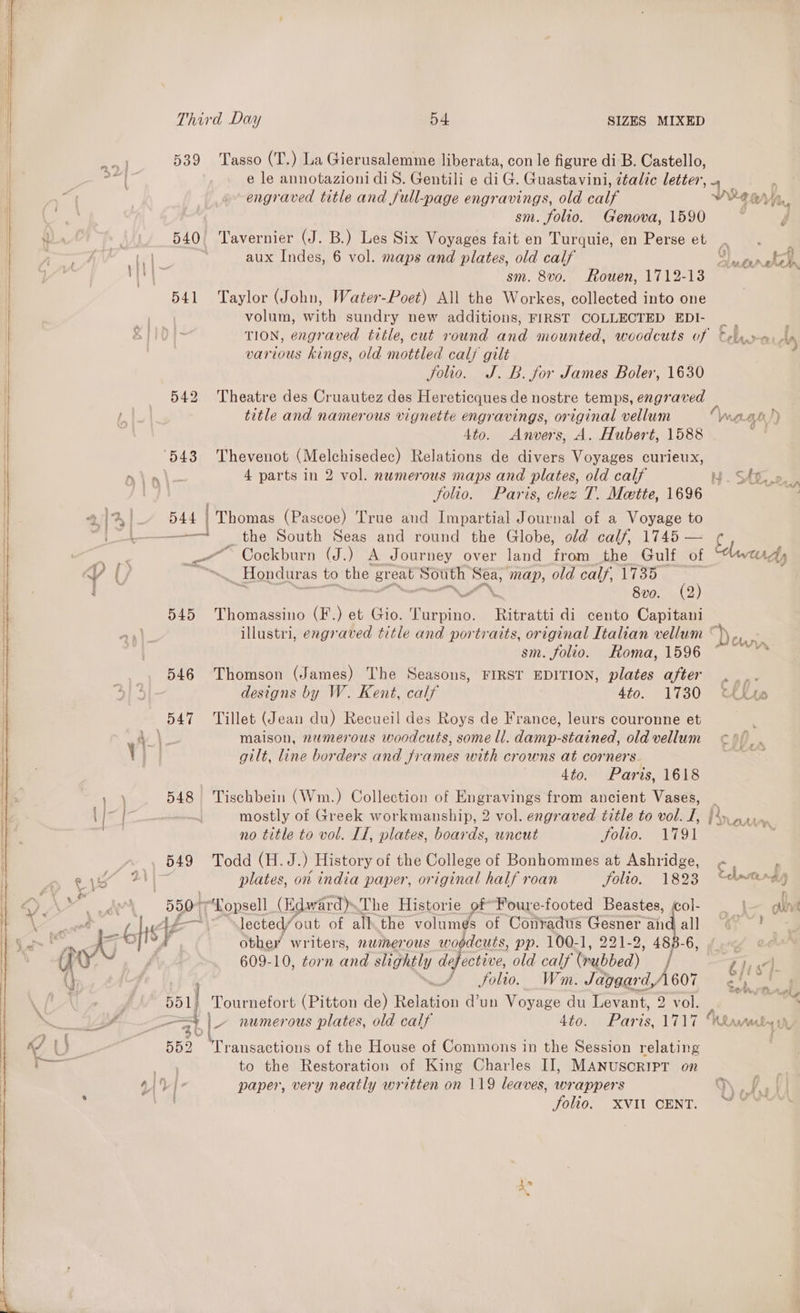 Third Day 54 SIZES MIXED
539 Tasso (T.) La Gierusalemme liberata, con le figure di B. Castello,
e le annotazioni di S. Gentili e di G. Guastavini, italic letter,
engraved title and full-page engravings, old calf
sm. folio. Genova, 1590
540 Tavernier (J. B.) Les Six Voyages fait en Turquie, en Perse et
aux Indes, 6 vol. maps and plates, old calf
sm. 8vo. Rouen, 1712-13
541 Taylor (John, Water-Poet) All the Workes, collected into one
volum, with sundry new additions, FIRST COLLECTED EDI-
TION, engraved title, cut round and mounted, woodcuts of
various kings, old mottled calf gilt
folio. J. B. for James Boler, 1630
542 Theatre des Cruautez des Hereticques de nostre temps, engraved
title and namerous vignette engravings, original vellum
4to. Anvers, A. Hubert, 1588
543 Thevenot (Melchisedec) Relations de divers Voyages curieux,
4 parts in 2 vol. numerous maps and plates, old calf
folio. Paris, chez T. Mœtte, 1696
544 Thomas (Pascoe) True and Impartial Journal of a Voyage to
the South Seas and round the Globe, old calf, 1745 —
Cockburn (J.) A Journey over land from the Gulf of
Honduras to the great South Sea, map, old calf, 1735
8vo. (2)
545 Thomassino (F.) et Gio. Turpino. Ritratti di cento Capitani
illustri, engraved title and portraits, original Italian vellum
sm. folio. Roma, 1596
546 Thomson (James) The Seasons, FIRST EDITION, plates after
designs by W. Kent, calf 4to. 1730
547 Tillet (Jean du) Recueil des Roys de France, leurs couronne et
maison, numerous woodcuts, some ll. damp-stained, old vellum
gilt, line borders and frames with crowns at corners
4to. Paris, 1618
548 Tischbein (Wm.) Collection of Engravings from ancient Vases,
mostly of Greek workmanship, 2 vol. engraved title to vol. I,
no title to vol. II, plates, boards, uncut folio. 1791
549 Todd (H. J.) History of the College of Bonhommes at Ashridge,
plates, on india paper, original half roan folio. 1823
550 Topsell (Edward) The Historie of Foure-footed Beastes, col-
lected out of all the volumes of Conradus Gesner and all
other writers, numerous woodcuts, pp. 100-1, 221-2, 485-6,
609-10, torn and slightly defective, old calf (rubbed)
folio. Wm. Jaggard, 1607
551 Tournefort (Pitton de) Relation d'un Voyage du Levant, 2 vol.
numerous plates, old calf 4to. Paris, 1717
552 Transactions of the House of Commons in the Session relating
to the Restoration of King Charles II, MANUSCRIPT on
paper, very neatly written on 119 leaves, wrappers
folio. XVII CENT.